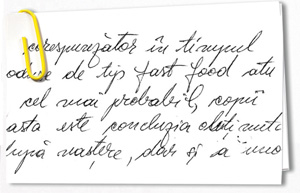 corespunzător în timpul
de tip fast food atu
cel mai probabil, copii
asta este concluzia obținută
după naștere, dar și a uno